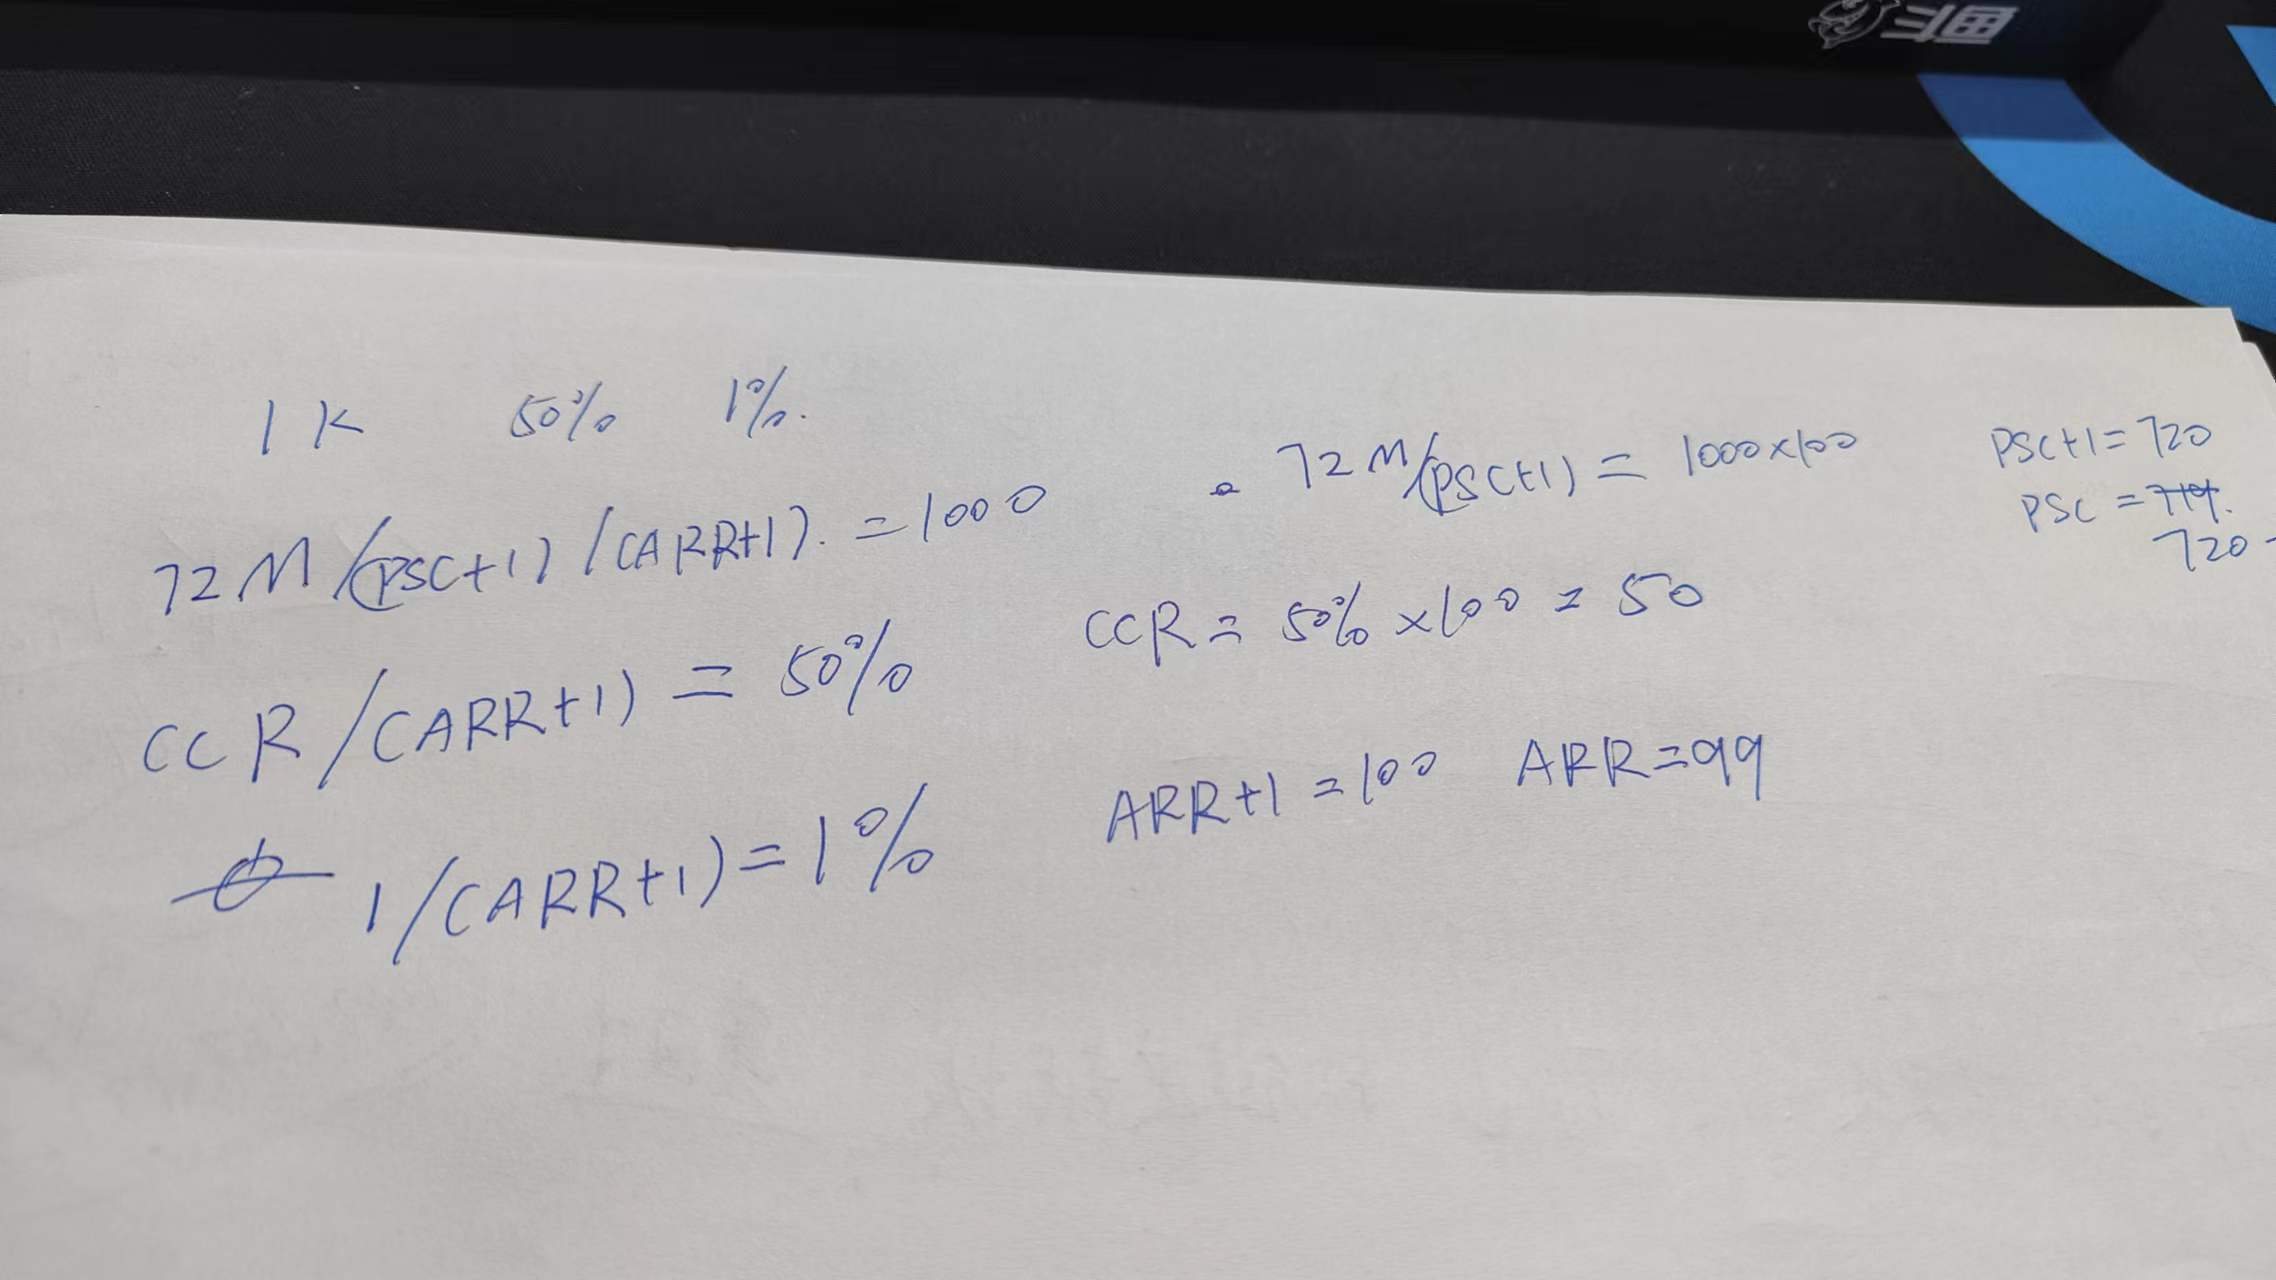 1K 50% 1%.
72M/(PSC+1)/(ARR+1).=1000
CCR/(ARR+1)=50%
1/(ARR+1)=1%
72M/(PSC+1)=1000×100
CCR=50%×100=50
ARR+1=100 ARR=99
PSC+1=720
PSC=719.
720-